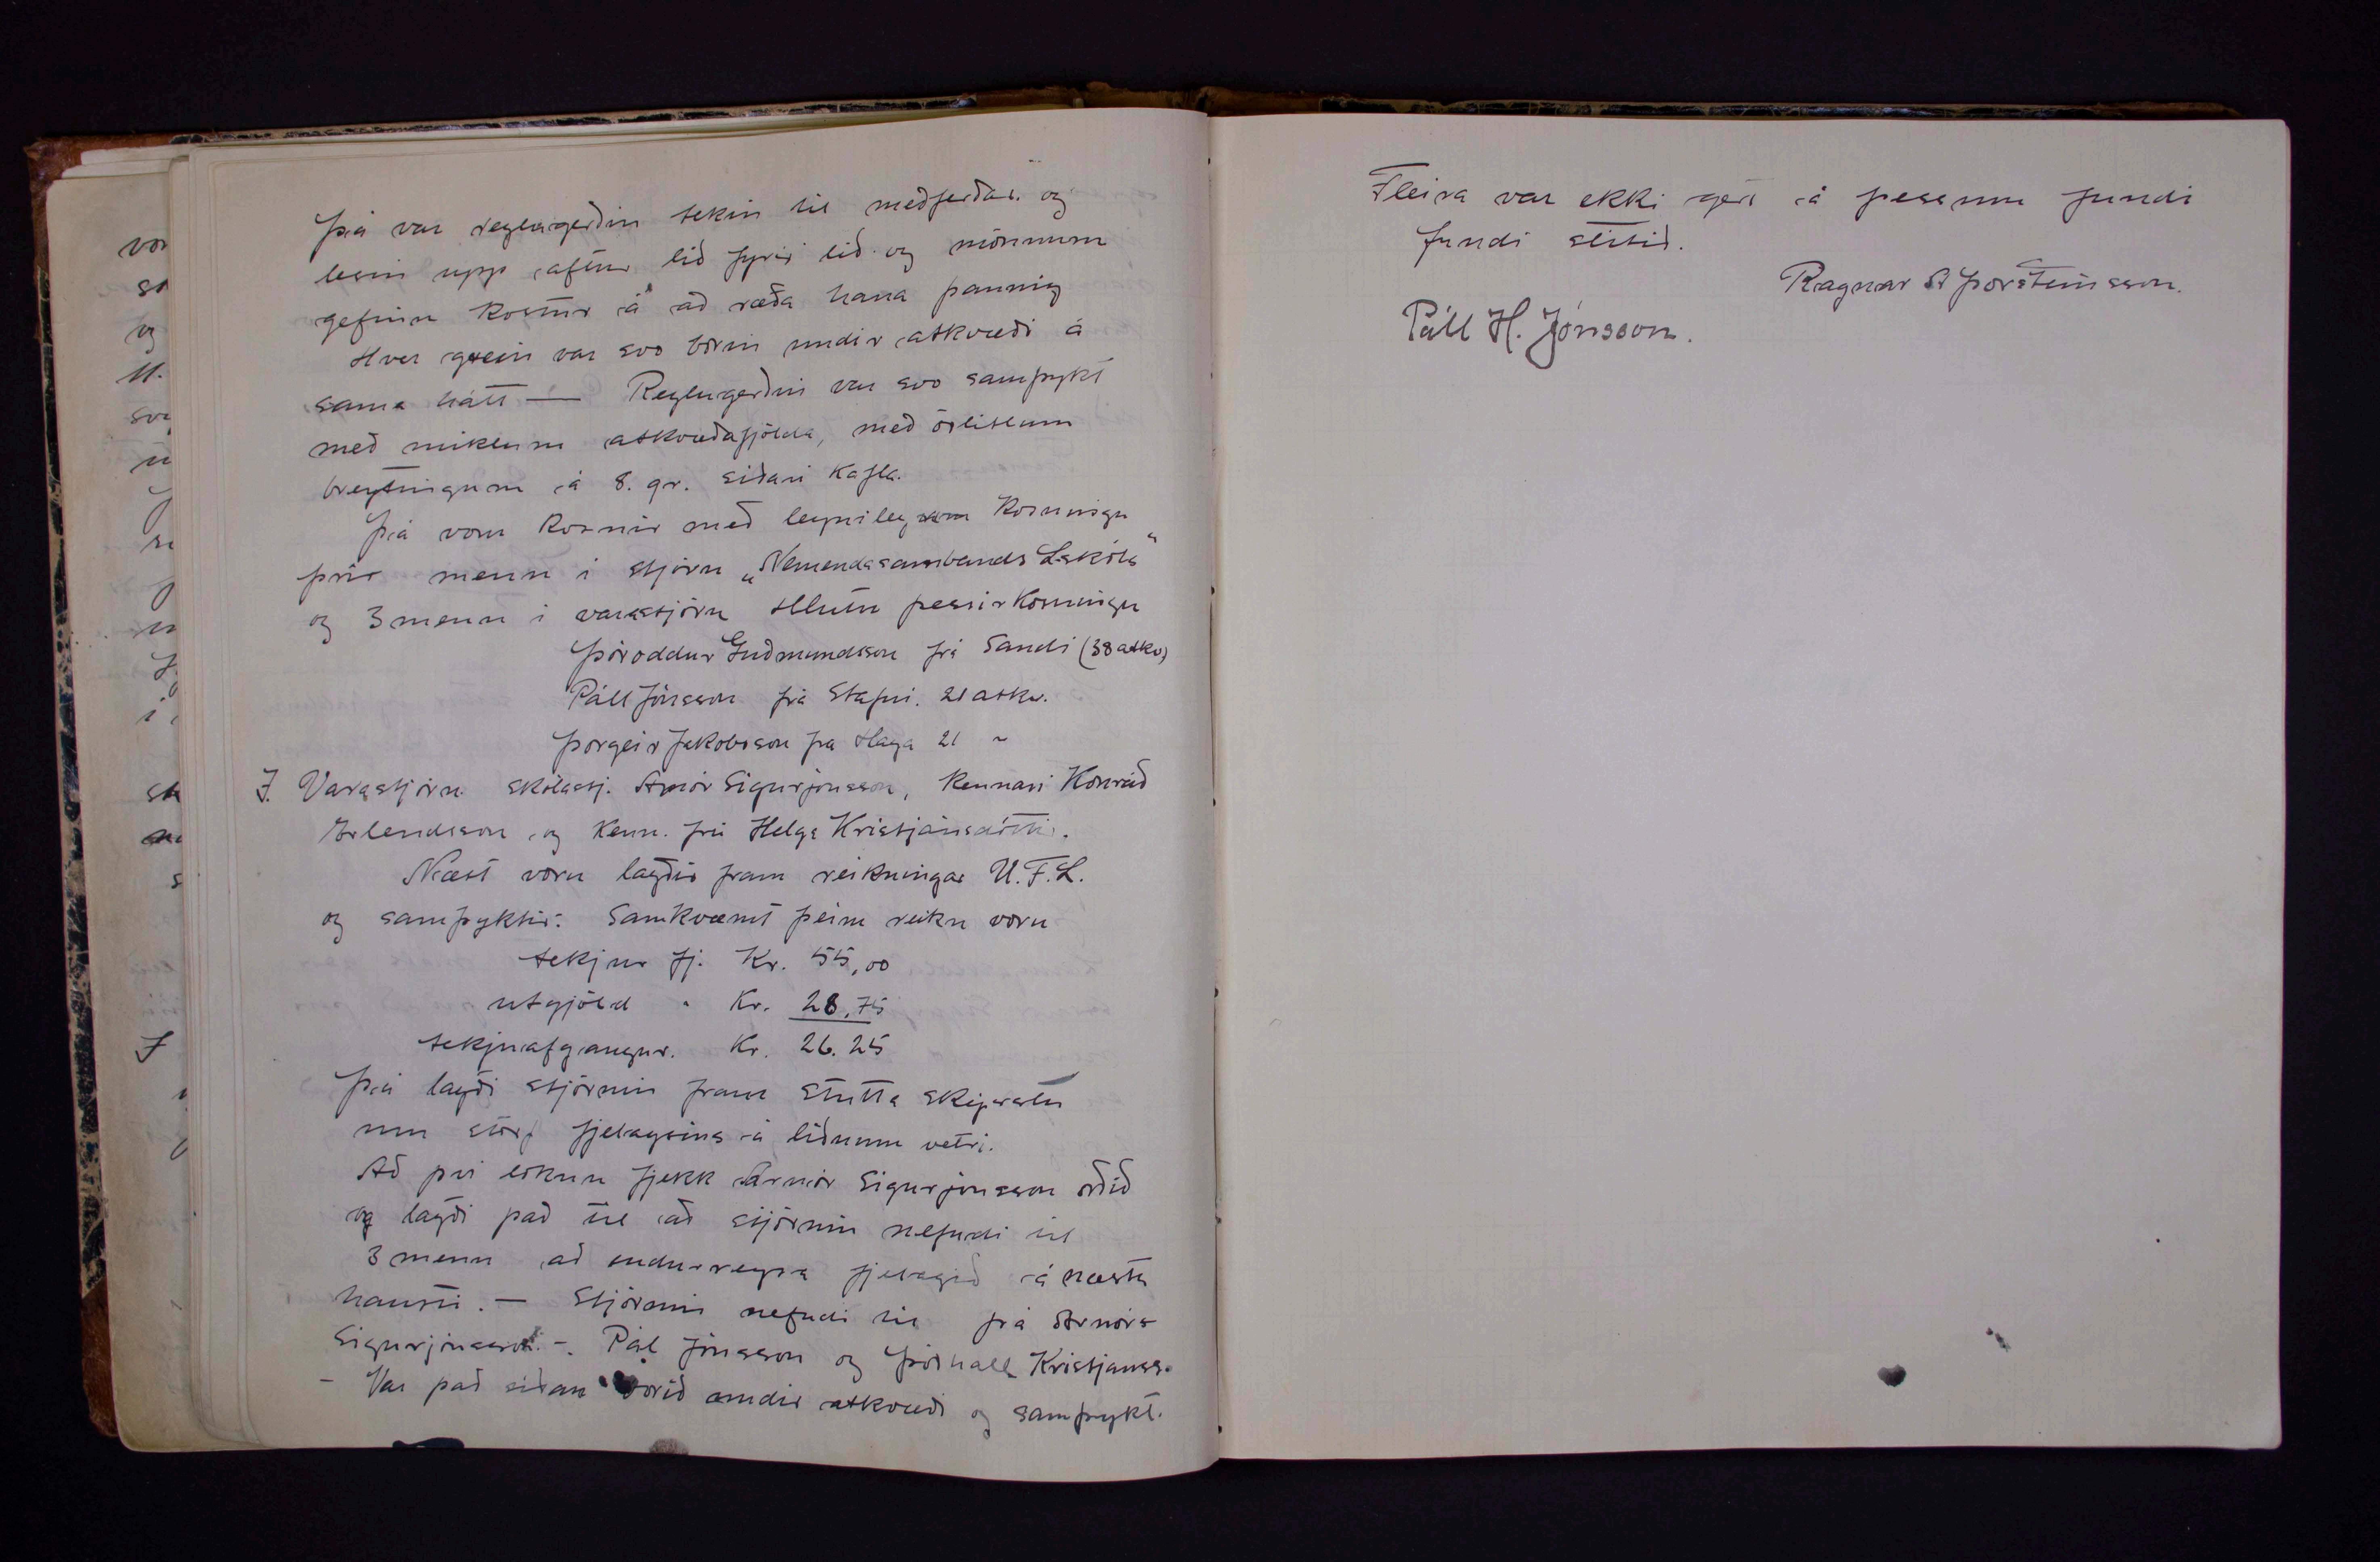 Þá var reglugerðin tekin til meðferðar og
lesin upp aftur lið fyrir lið og mönnum
gefinn kostur á að ræða hana þannig
Hver grein var svo borin undir atkvæði á
sama hátt — Reglugerðin var svo samþykt
með miklum atkvæðafjölda, með örlitlum
breytingum á 8. gr. síðari kafla.
Þá voru kosnir með leynilegri kosningu
þrír menn í stjórn „Nemendasambands L.skóla“
og 3 menn í varastjórn Hlutu þessir kosningu
Þóroddur Guðmundsson frá Sandi (38 atkv)
Páll Jónsson frá Stafni. 21 atkv.
Þorgeir Jakobsson fra Haga 21 ~
Í Varastjórn skólastj. Arnór Sigurjónsson, kennari Konráð
Erlendsson og kenn. frú Helga Kristjánsdóttir.
Næst voru lagðir fram reikningar U.F.L.
og samþyktir. Samkvæmt þeim reikn voru
tekjur fj. Kr. 55,00
utgjöld " Kr. 28,75
tekjuafgangur. Kr. 26.25
Þá lagði stjórnin fram stutta skýrslu
um störf fjelagsins á liðnum vetri.
Að því loknu fjekk Arnór Sigurjónsson orðið
og lagði það til að stjórnin nefndi til
3 menn að endurreysa fjelagið á næsta
hausti. — Stjórnin nefndi til þá Arnór
Sigurjónsson -. Pál Jónsson og Þórhall Kristjánss.
- Var það síðan borið undir atkvæði og samþykt.
Fleira var ekki gert á þessum fundi
fundi slitið.
Ragnar A Þorsteinsson.
Páll H. Jónsson.